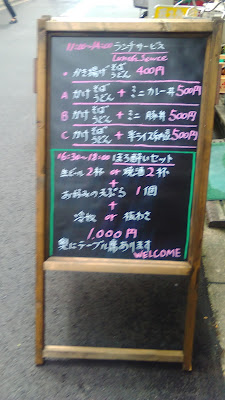 11:00~14:00 ランチサービス
Lunch Service
・かき揚げ そば うどん 400円
A かけ そば うどん + ミニ カレー丼 500円
B かけ そば うどん + ミニ 豚丼 500円
C かけ そば うどん + 半ライス 500円
16:30~18:00 ほろ酔いセット
生ビール2杯 or 焼酎2杯
+
お好みの天ぷら 1個
+
冷奴 or 板わさ
1,000円
奥にテーブル席あります
WELCOME